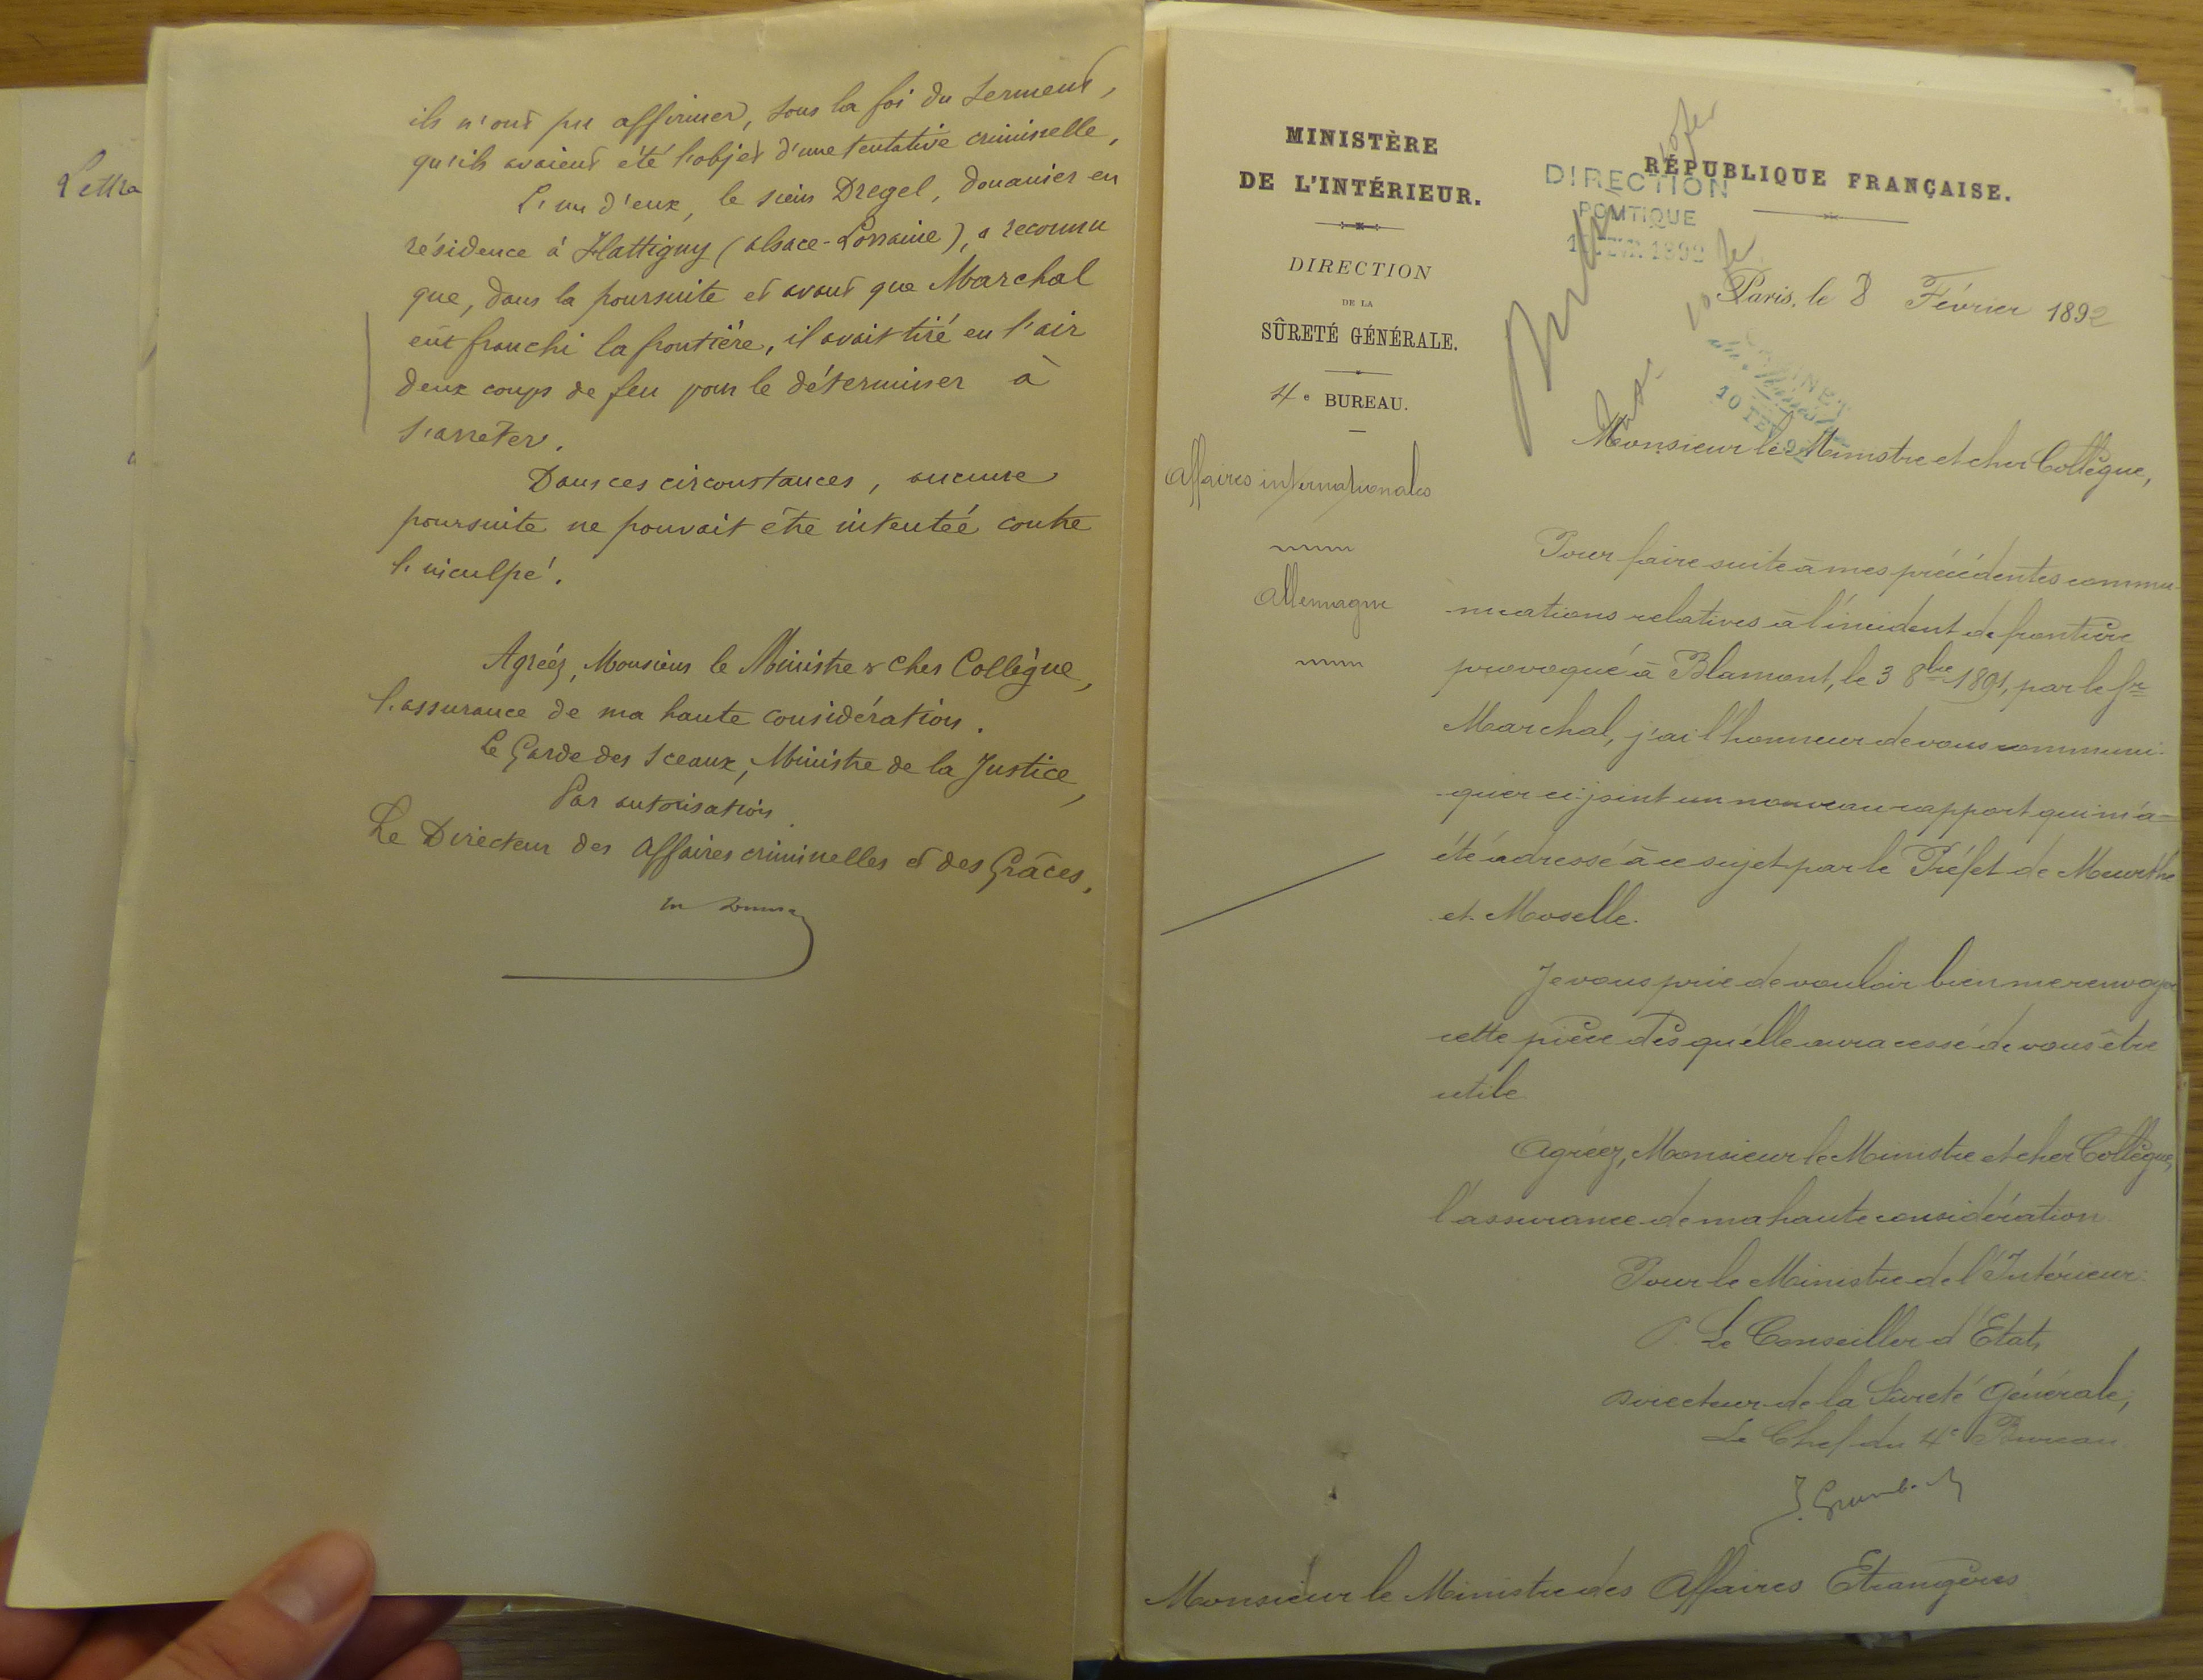 Lettre
ils n'ont pu affirmer, sous la foi du serment,
qu'ils avaient été l'objet d'une tentative criminelle,
L'un d'eux, le sieur Dregel, douanier en
résidence à Hattigny (Alsace-Lorraine), a reconnu
que, dans la poursuite et avant que Marchal
eût franchi la frontière, il avait tiré en l'air
deux coups de feu pour le déterminer à
s'arrêter.
Dans ces circonstances, aucune
poursuite ne pouvait être intentée contre
l'inculpé.
Agréez, Monsieur le Ministre & Cher Collègue,
l'assurance de ma haute considération.
Le Garde des Sceaux, Ministre de la Justice,
Par autorisation
Le Directeur des Affaires criminelles et des Grâces,
MINISTÈRE
DE L'INTÉRIEUR.
DIRECTION
DE LA
SÛRETÉ GÉNÉRALE.
4e BUREAU.
Affaires internationales
Allemagne
RÉPUBLIQUE FRANÇAISE.
DIRECTION
POLITIQUE
1892
Paris, le 8 Février 1892
CABINET
10 FEV 92
Monsieur le Ministre et cher Collègue,
Pour faire suite à mes précédentes commu-
nications relatives à l'incident de frontière
provoqué à Blamont, le 3 8bre 1891, par le Sr
Marchal, j'ai l'honneur de vous communi-
quer ci-joint un nouveau rapport qui m'a
été adressé à ce sujet par le Préfet de Meurthe
et Moselle.
Je vous prie de vouloir bien me renvoyer
cette pièce dès qu'elle aura cessé de vous être
utile.
Agréez, Monsieur le Ministre et cher Collègue,
l'assurance de ma haute considération
Pour le Ministre de l'Intérieur:
P. Le Conseiller d'Etat,
Directeur de la Sûreté Générale,
Le Chef du 4e Bureau
Monsieur le Ministre des Affaires Etrangères